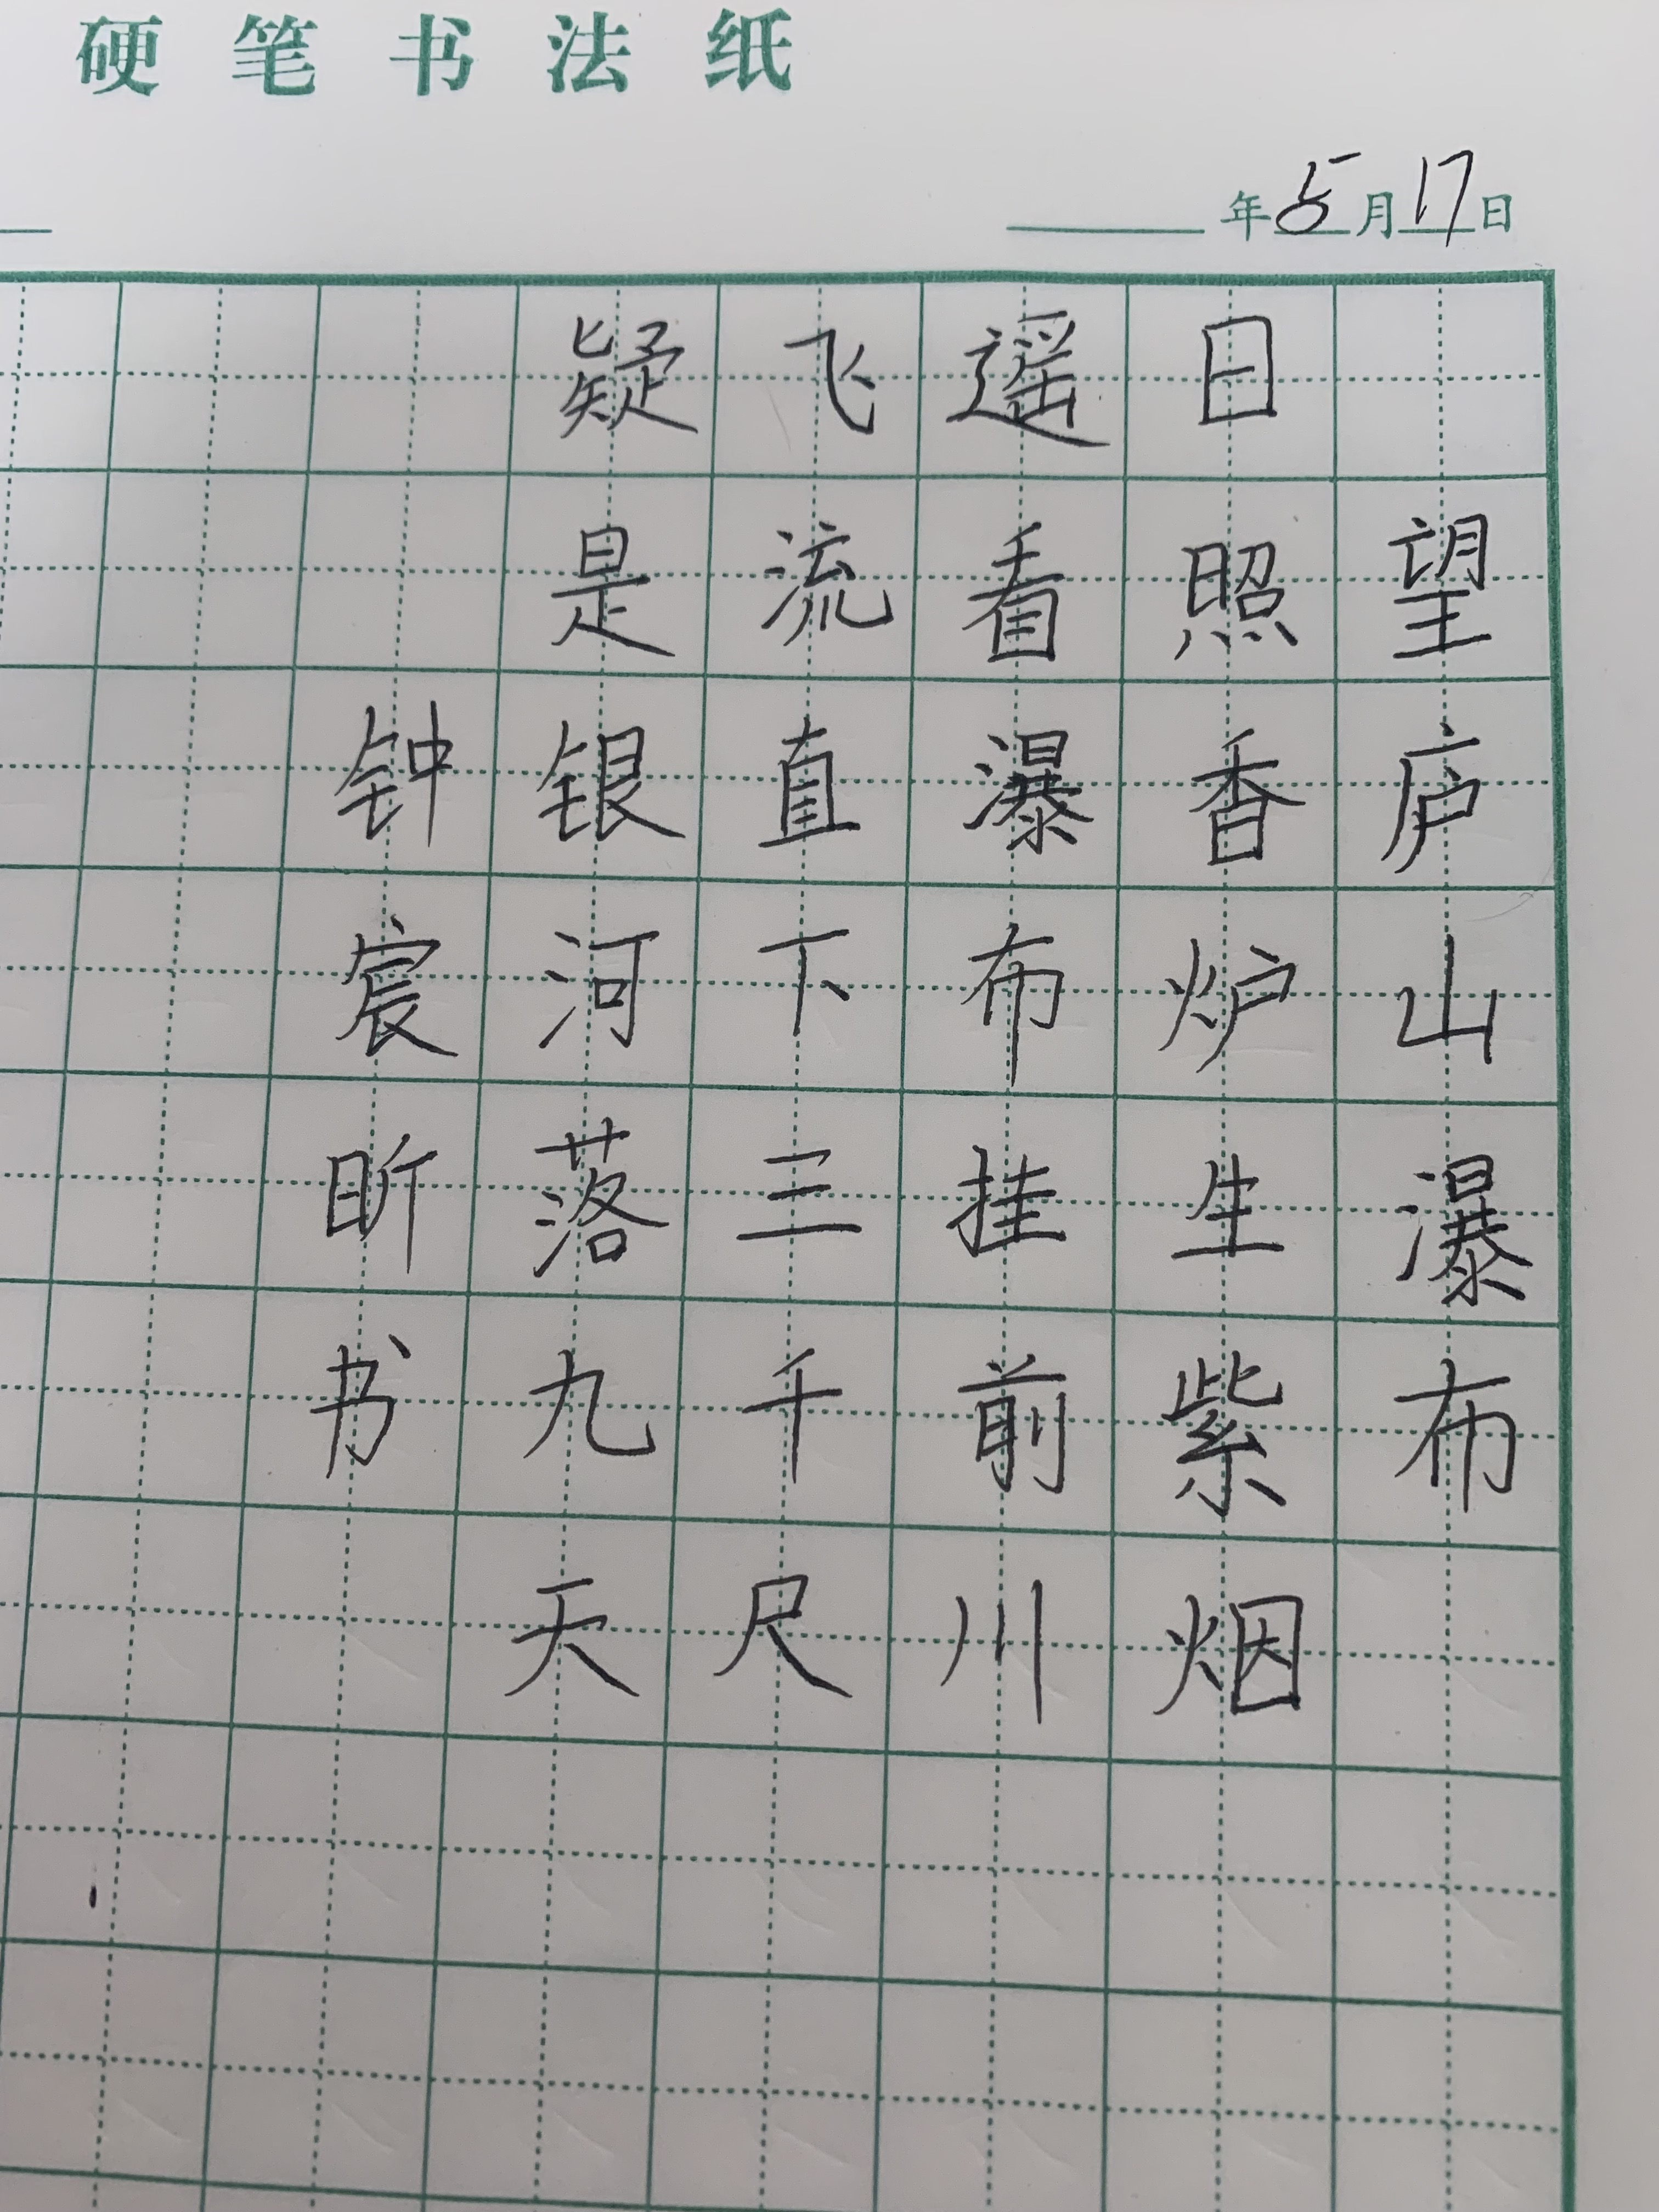 硬笔书法纸
年5月17日
望庐山瀑布
日照香炉生紫烟
遥看瀑布挂前川
飞流直下三千尺
疑是银河落九天
钟宸昕书